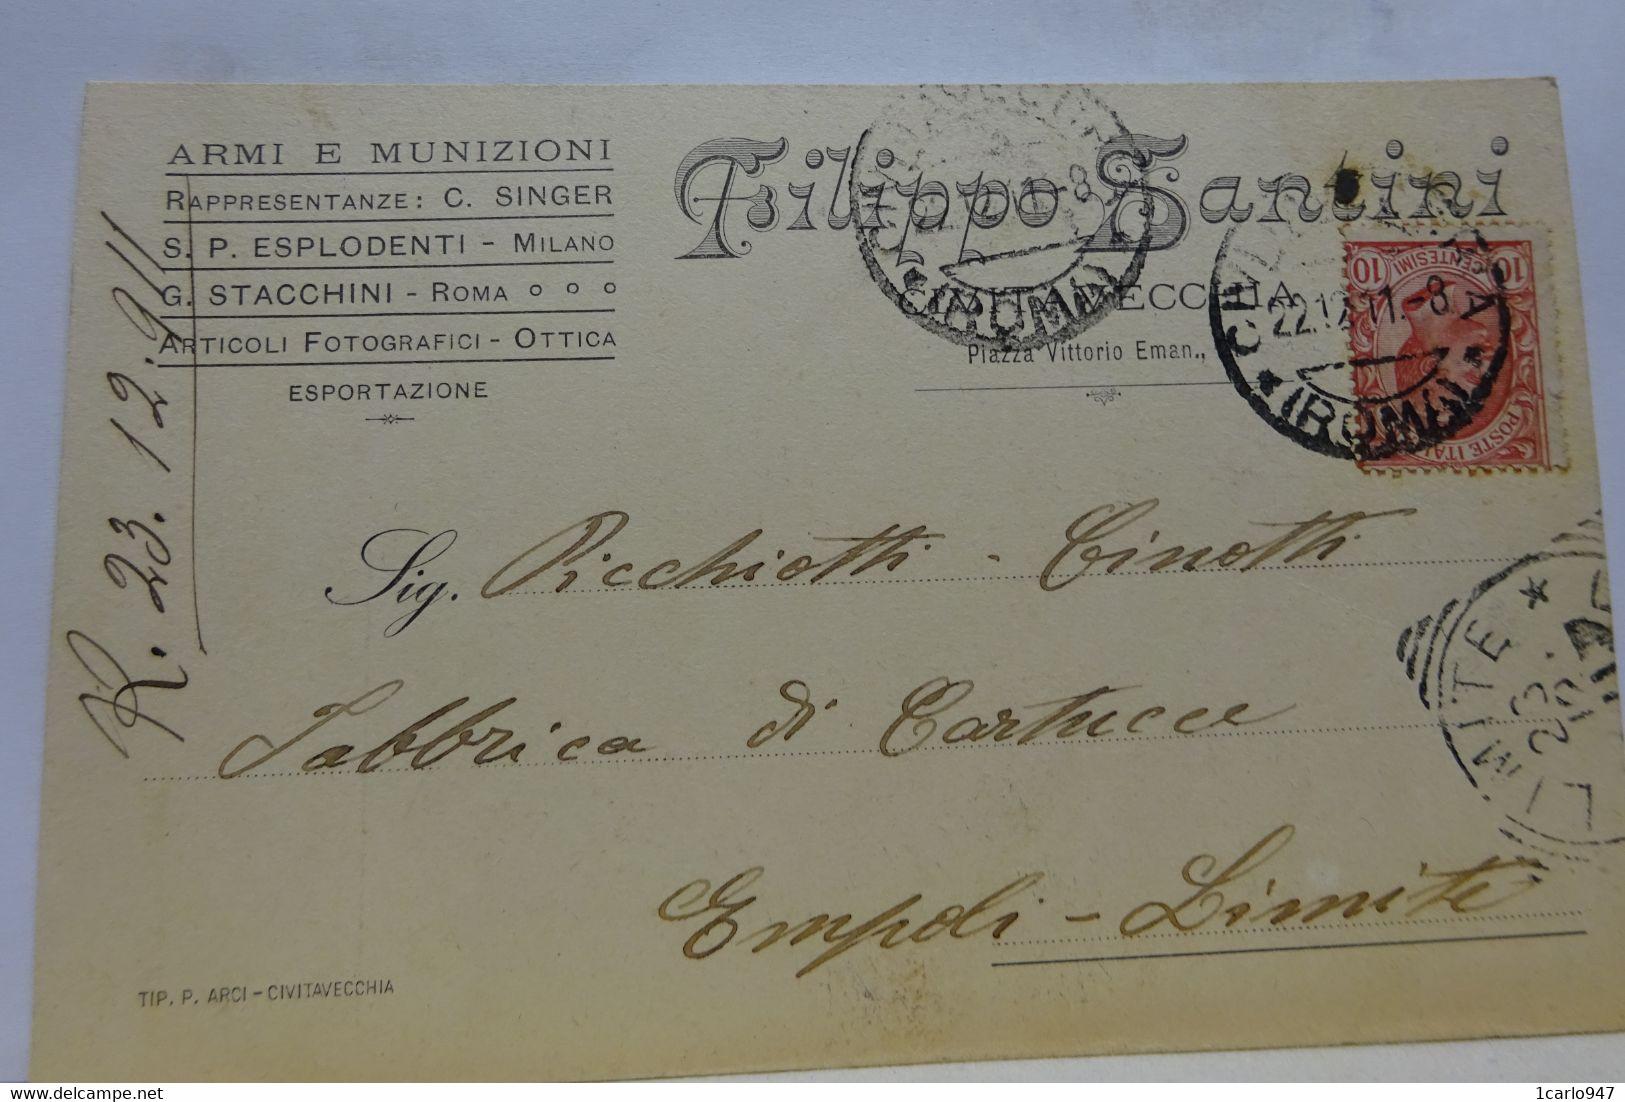 ARMI E MUNIZIONI
RAPPRESENTANZE: C. SINGER
S. P. ESPLODENTI - MILANO
G. STACCHINI - ROMA o o o
ARTICOLI FOTOGRAFICI - OTTICA
ESPORTAZIONE
Filippo Santini
CIVITAVECCHIA
Piazza Vittorio Eman.,
CIVITAVECCHIA
22.12.11.-8
*(ROMA)*
CIVITAVECCHIA
22.12.11.-8
*(ROMA)*
10 CENTESIMI 10
POSTE ITAL
R. 23.12.911
Sig. Picchiotti - Cinotti
Fabbrica di Cartucce
Empoli - Limite
LIMITE *
23
12
11
TIP. P. ARCI - CIVITAVECCHIA
www.delcampe.net
1carlo947